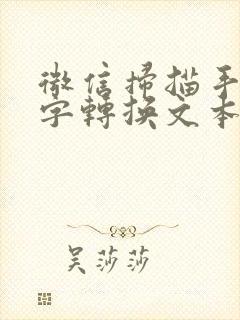 微信掃描手
字轉換文本
吴莎莎